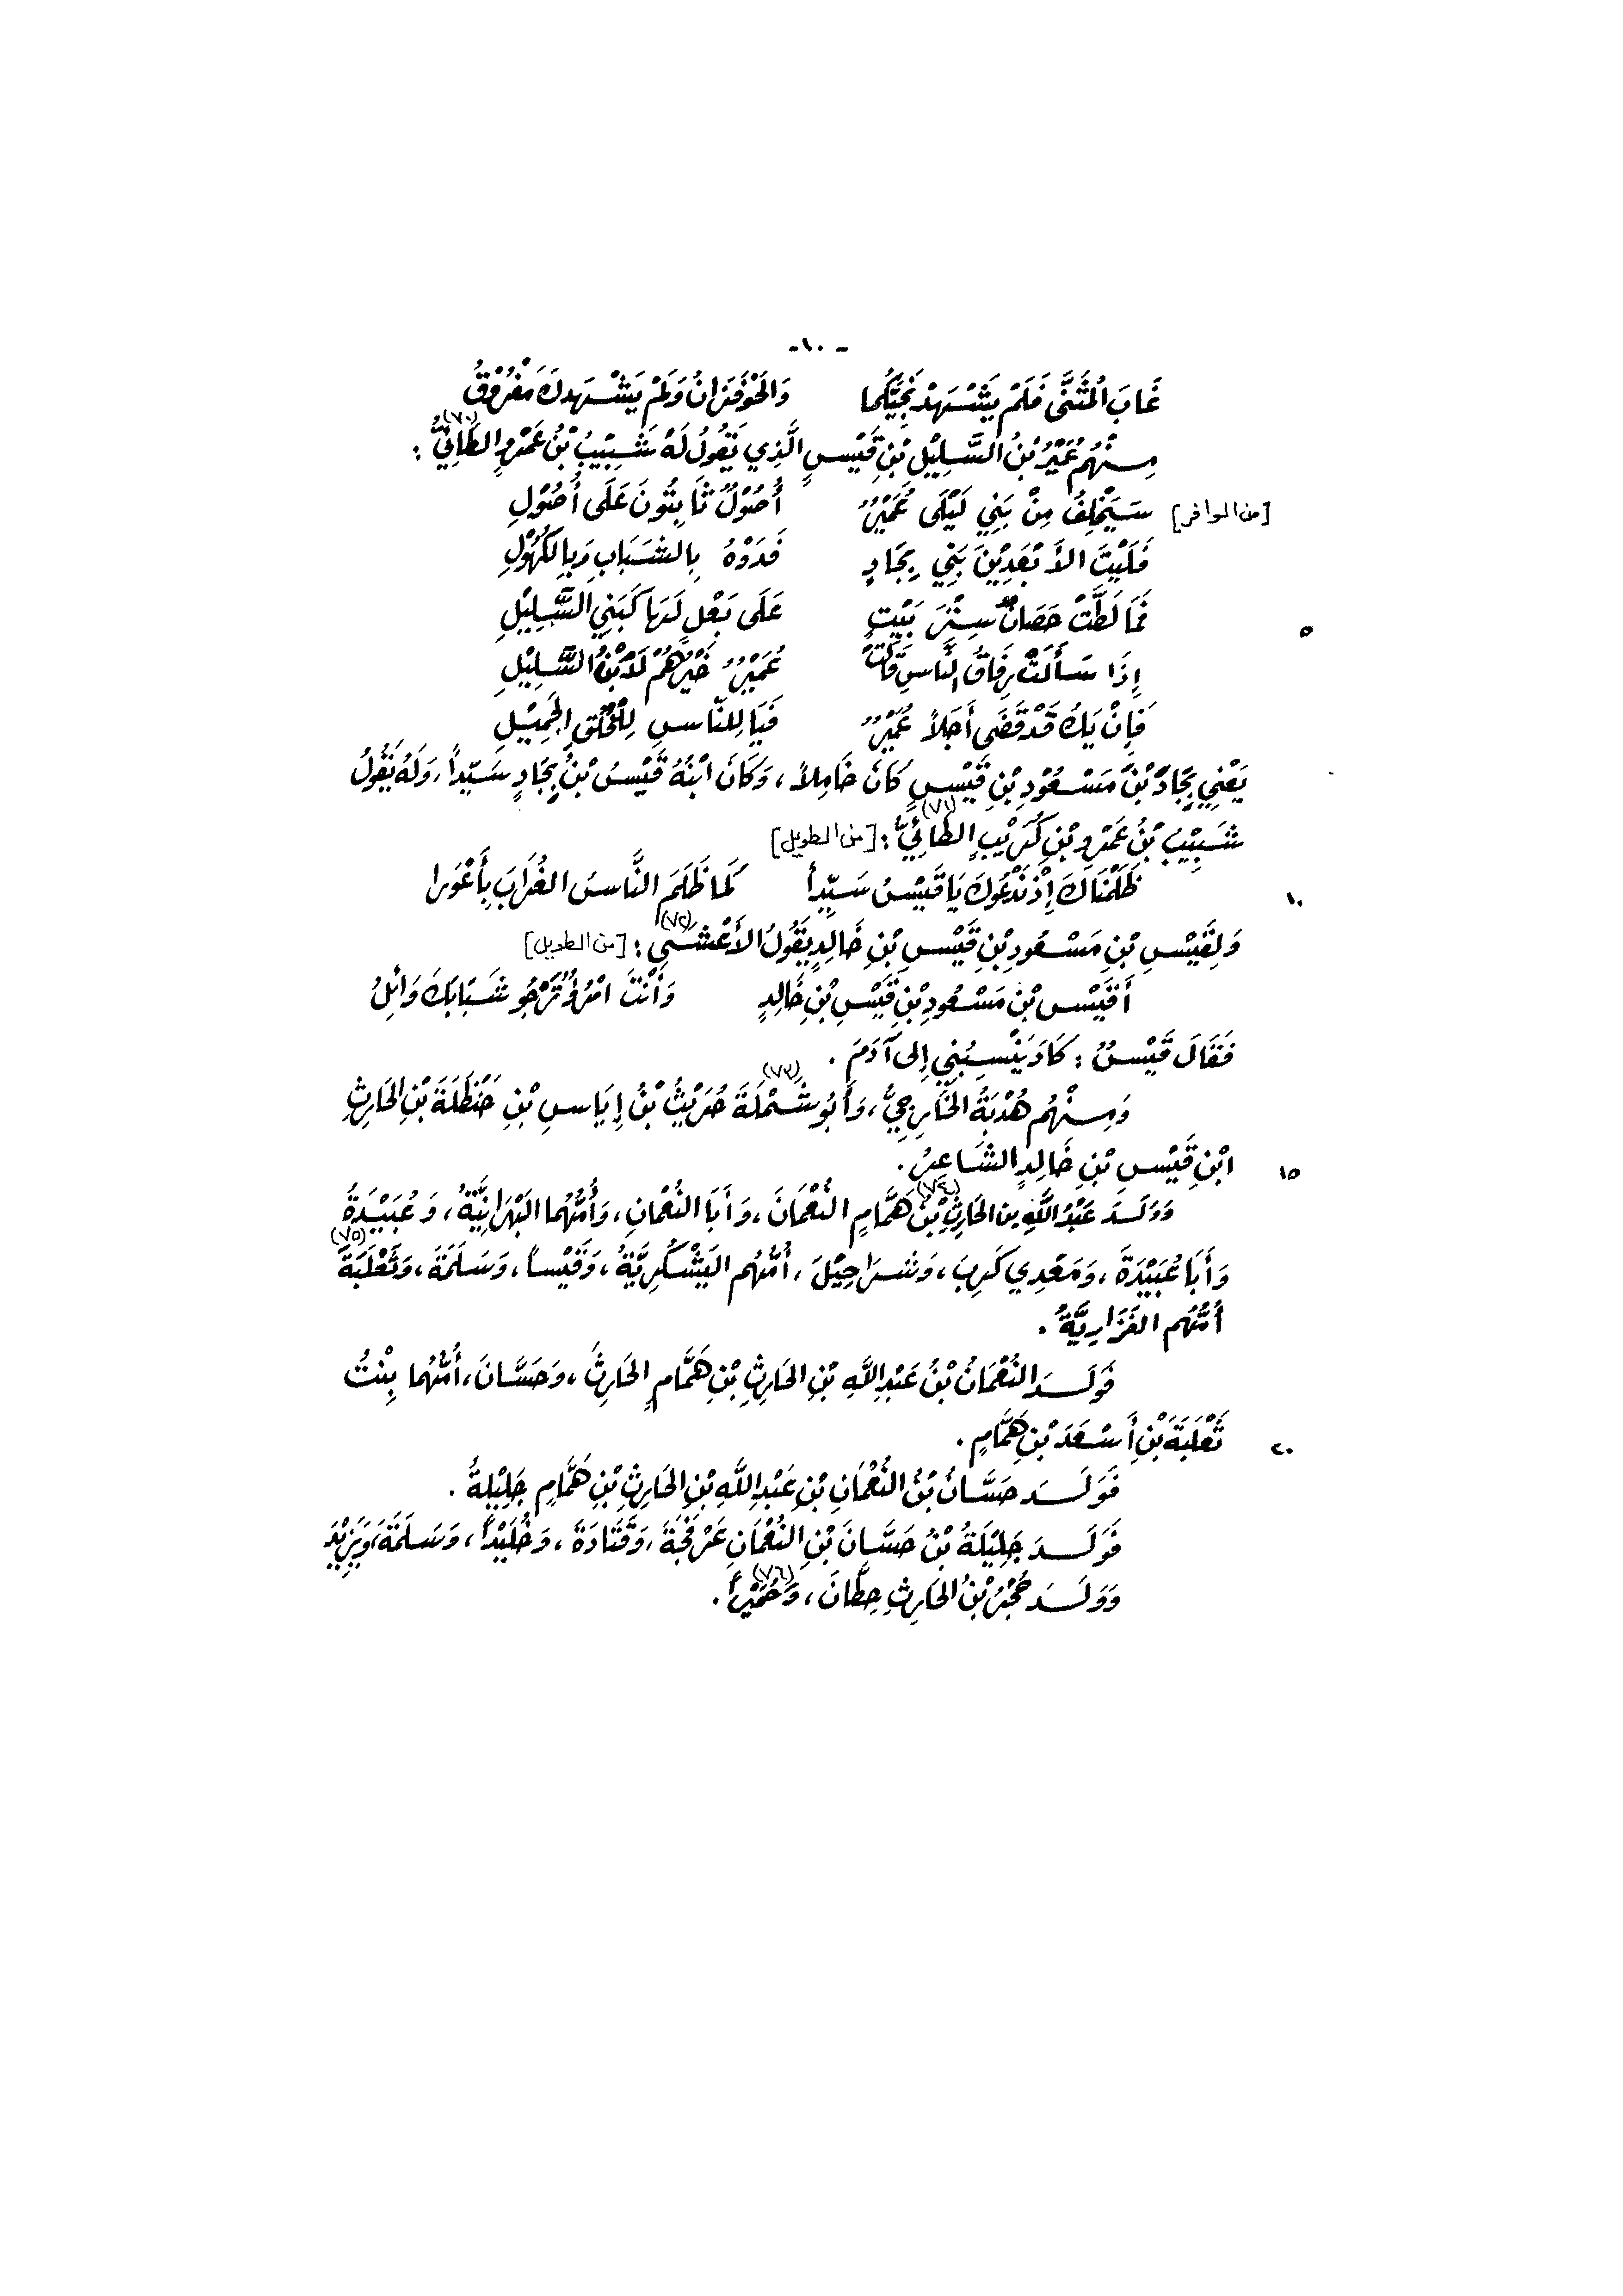 -١٠-
غَابَ الُمثَنَّى فَلَمْ يَشْهَدْ نَجِيَّكُما وَالحَوْفَزَانُ وَلَمْ يَشْهَدكَ مَفْرُوْقُ
مِنْهُم عُمَيْرُ بْنُ السَّلِيْلِ بْنِ قَيْسٍ الَّذِي يَقُولُ لَهُ شَبِيْبُ بْنُ عَمْرٍو الطَائِيُّ (٧٠) :
[من الوافر] سَيَخْلِفُ مِنْ بَنِي لَيْلَى عُمَيْرٌ أُصُوْلٌ ثَابِتُونَ عَلَى أُصُوْلِ
فَلَيْتَ الأَبْعَدِيْنَ بَنِي بِجَادٍ فَدَوْهُ بِالشَبَابِ وَبِالكُهُوْلِ
٥ فَمَا لَطَّتْ حَصَانٌ سِتْرَ بَيْتٍ عَلَى بَعْلٍ لَهَا كَبَنِي السَّلِيْلِ
إِذَا سَأَلَتْ رِفَاقُ النَّاسِ قَالَتْ عُمَيْرٌ خَيْرُهُمْ لَابْنُ السَّلِيْلِ
فَإِنْ يَكُ قَدْ قَضَى أَجَلاً عُمَيْرٌ فَيَا لِلنَّاسِ لِلْخُلُقِ الجَمِيْلِ
يَعْنِي بِجَادَ بْنَ مَسْعُوْدِ بْنِ قَيْسٍ كَانَ خَامِلاً، وَكَانَ ابْنُهُ قَيْسُ بْنُ بِجَادٍ سَيّداً، وَلَهُ يَقُولُ
شَبِيْبُ بْنُ عَمْرِو بْنِ كُرَيْبٍ الطَائِيُّ (٧١) : [من الطويل]
١٠ ظَلَمْنَاكَ إِذْ نَدْعُوكَ يَا قَيْسُ سَيّداً كَما ظَلَمَ النَّاسُ الغُرَابَ بِأَعْوَرا
وَلِقَيْسِ بْنِ مَسْعُودِ بْنِ قَيْسِ بْنِ خَالِدٍ يَقُولُ الأَعْشَى (٧٢) : [من الطويل]
أَقَيْسَ بْنَ مَسْعُودِ بْنِ قَيْسِ بْنِ خَالِدٍ وَأَنْتَ امْرُؤٌ تَرْجُو شَبَابَكَ وَائِلُ
فَقَالَ قَيْسٌ : كَادَ يَنْسِبُنِي إِلى آدَمَ .
وَمِنْهُم هُدْبَةُ الخَارِجِيُّ، وَأَبُو شَمْلَةَ (٧٣) حُرَيْثُ بْنُ إِيَاسِ بْنِ حَنْظَلَةَ بْنِ الحَارِثِ
١٥ ابْنِ قَيْسِ بْنِ خَالِدٍ الشَاعِرُ.
وَوَلَدَ عَبْدُ اللَّهِ بن الحَارِثِ (٧٤) بْنِ هَمَّامٍ النُعْمَانَ، وَأَبَا النُعْمَانِ، وَأُمُّهُما البَهْرَانِيَّةُ، وَعُبَيْدَةَ
وَأَبَا عُبَيْدَةَ، وَمَعْدِي كَرِبَ، وَشَرَاحِيْلَ، أُمُّهُم اليَشْكُرِيَّةُ، وَقَيْساً، وَسَلَمَةَ، وَثَعْلَبَةَ (٧٥)
أُمُّهُم الفَزَارِيَّةُ .
فَوَلَدَ النُعْمَانُ بْنُ عَبْدِ اللَّهِ بْنِ الحَارِثِ بْنِ هَمَّامٍ الحَارِثَ، وَحَسَّانَ، أُمُّهُما بِنْتُ
٢٠ ثَعْلَبَةَ بْنِ أَسْعَدَ بْنِ هَمَّامٍ .
فَوَلَدَ حَسَّانُ بْنُ النُعْمَانِ بْنِ عَبْدِ اللَّهِ بْنِ الحَارِثِ بْنِ هَمَّامٍ جَلِيْلةَ .
فَوَلَدَ جَلِيْلَةُ بْنُ حَسَّانَ بْنِ النُعْمَانِ عَرْفَجَةَ، وَقَتَادَةَ، وَخُلَيْداً، وَسَلَمَةَ، وَيَزِيْدَ
وَوَلَدَ حُجْرُ بْنُ الحَارِثِ حِطَّانَ، وَحُمَيْراً (٧٦) .